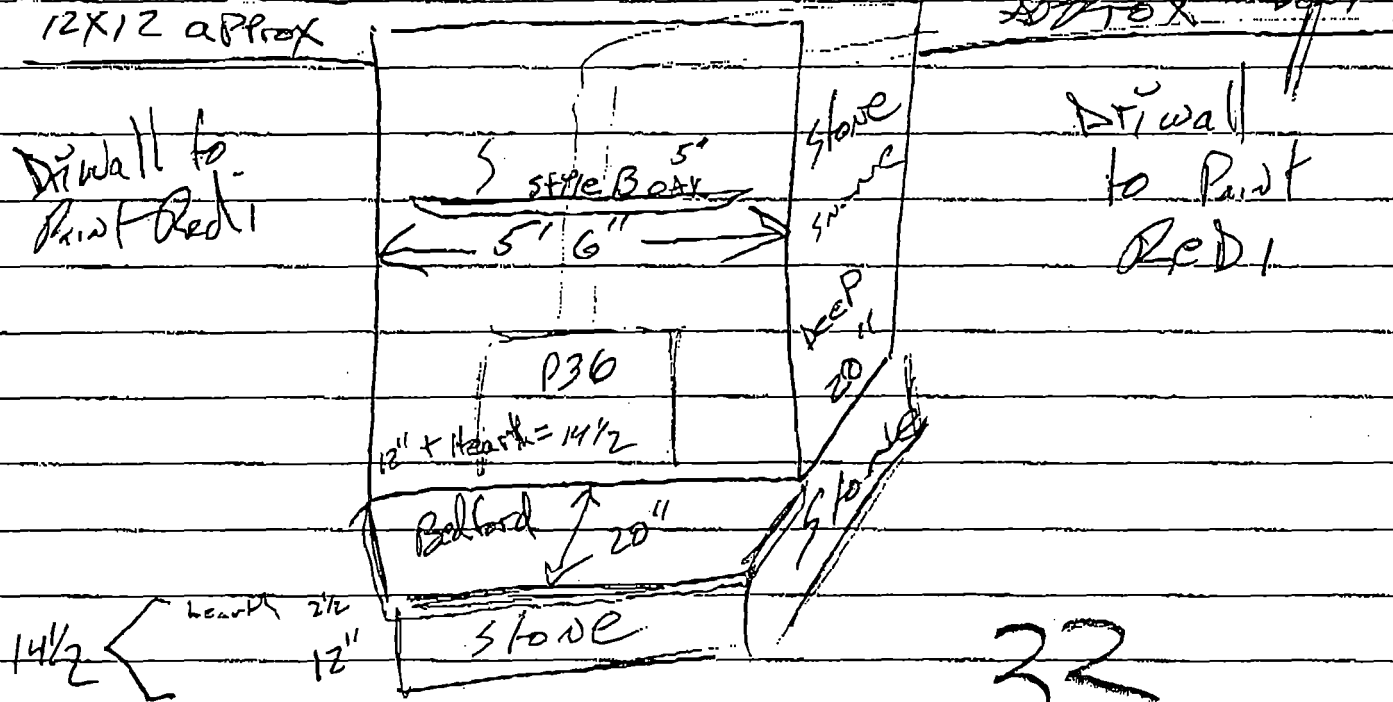 12X12 approx
approx
Driwall to
Paint Redi
Stone
Driwall
to Paint
ReD i
5'
style Beam
5' 6"
DeeP
20"
P36
12" + Hearth = 14 1/2
Bedford
20"
Stone
14 1/2
hearth 2 1/2
12"
Stone
22